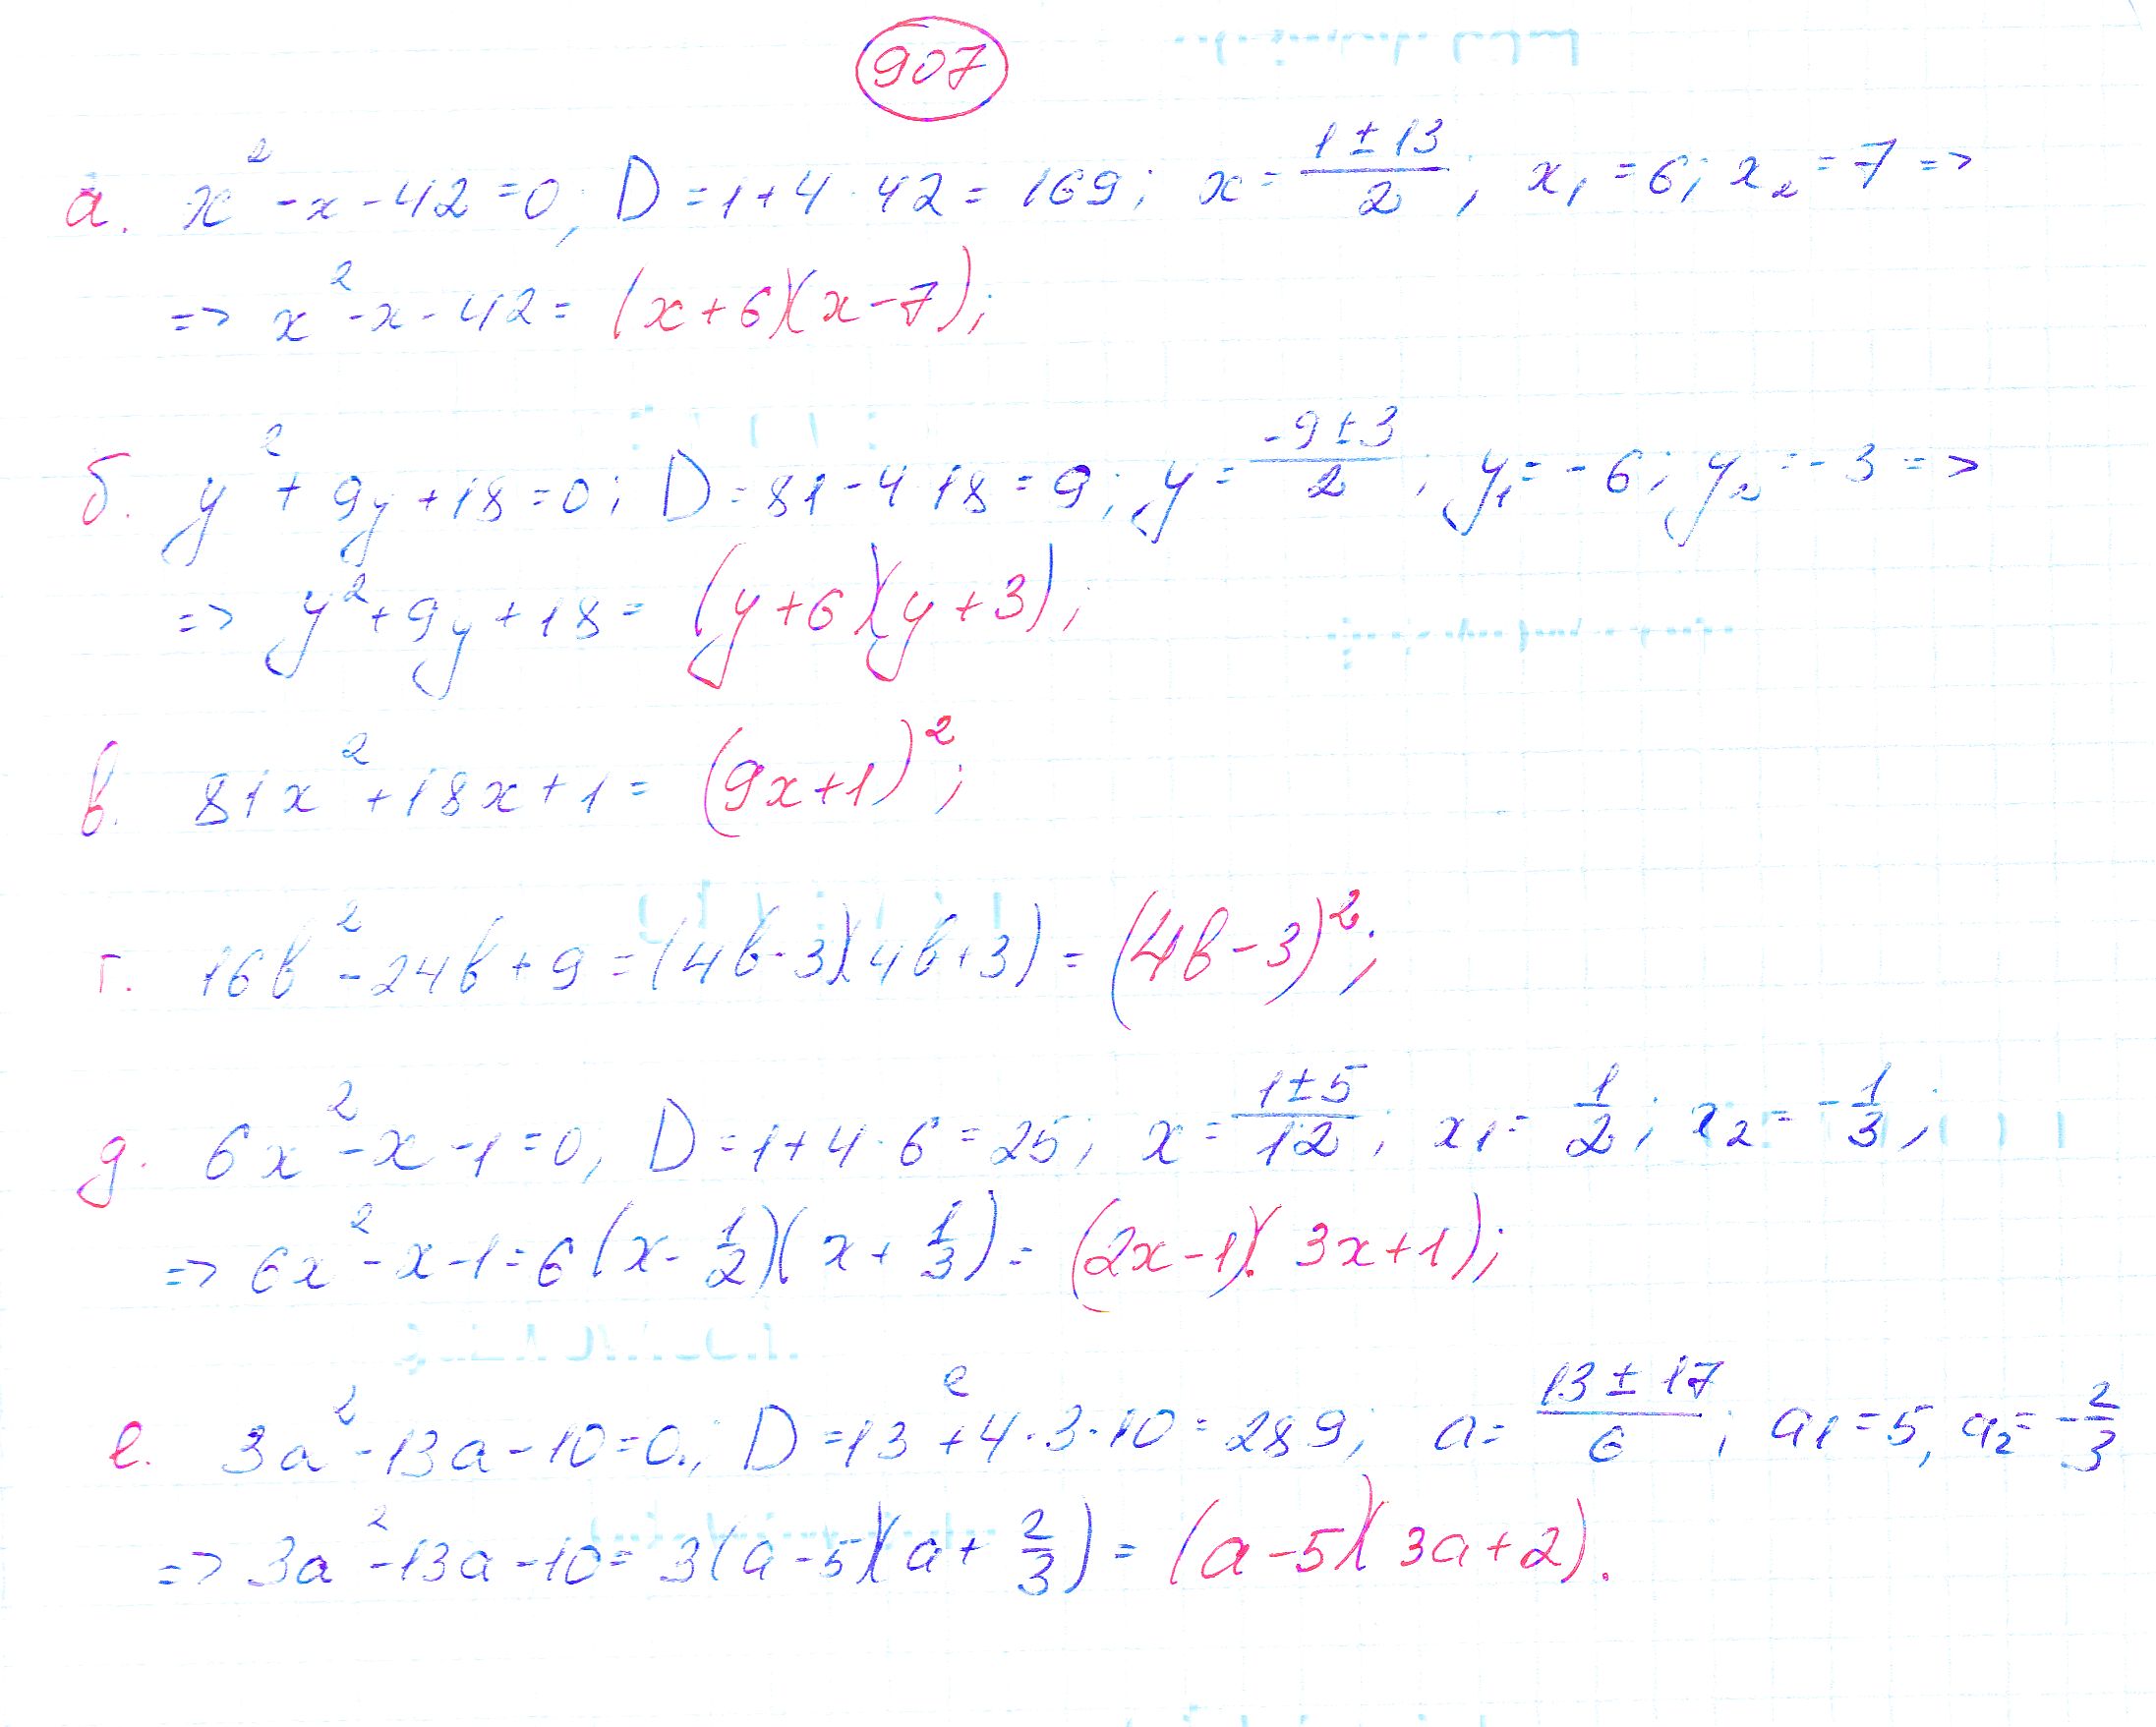 907
а. x² - x - 42 = 0; D = 1 + 4 · 42 = 169; x = (1 ± 13)/2; x₁ = 6; x₂ = 7 =>
=> x² - x - 42 = (x + 6)(x - 7);
б. y² + 9y + 18 = 0; D = 81 - 4 · 18 = 9; y = (-9 ± 3)/2; y₁ = -6; y₂ = -3 =>
=> y² + 9y + 18 = (y + 6)(y + 3);
в. 81x² + 18x + 1 = (9x + 1)²;
г. 16b² - 24b + 9 = (4b - 3)(4b + 3) = (4b - 3)²;
д. 6x² - x - 1 = 0; D = 1 + 4 · 6 = 25; x = (1 ± 5)/12; x₁ = 1/2; x₂ = -1/3;
=> 6x² - x - 1 = 6(x - 1/2)(x + 1/3) = (2x - 1)(3x + 1);
е. 3a² - 13a - 10 = 0.; D = 13² + 4 · 3 · 10 = 289; a = (13 ± 17)/6; a₁ = 5, a₂ = -2/3
=> 3a² - 13a - 10 = 3(a - 5)(a + 2/3) = (a - 5)(3a + 2).